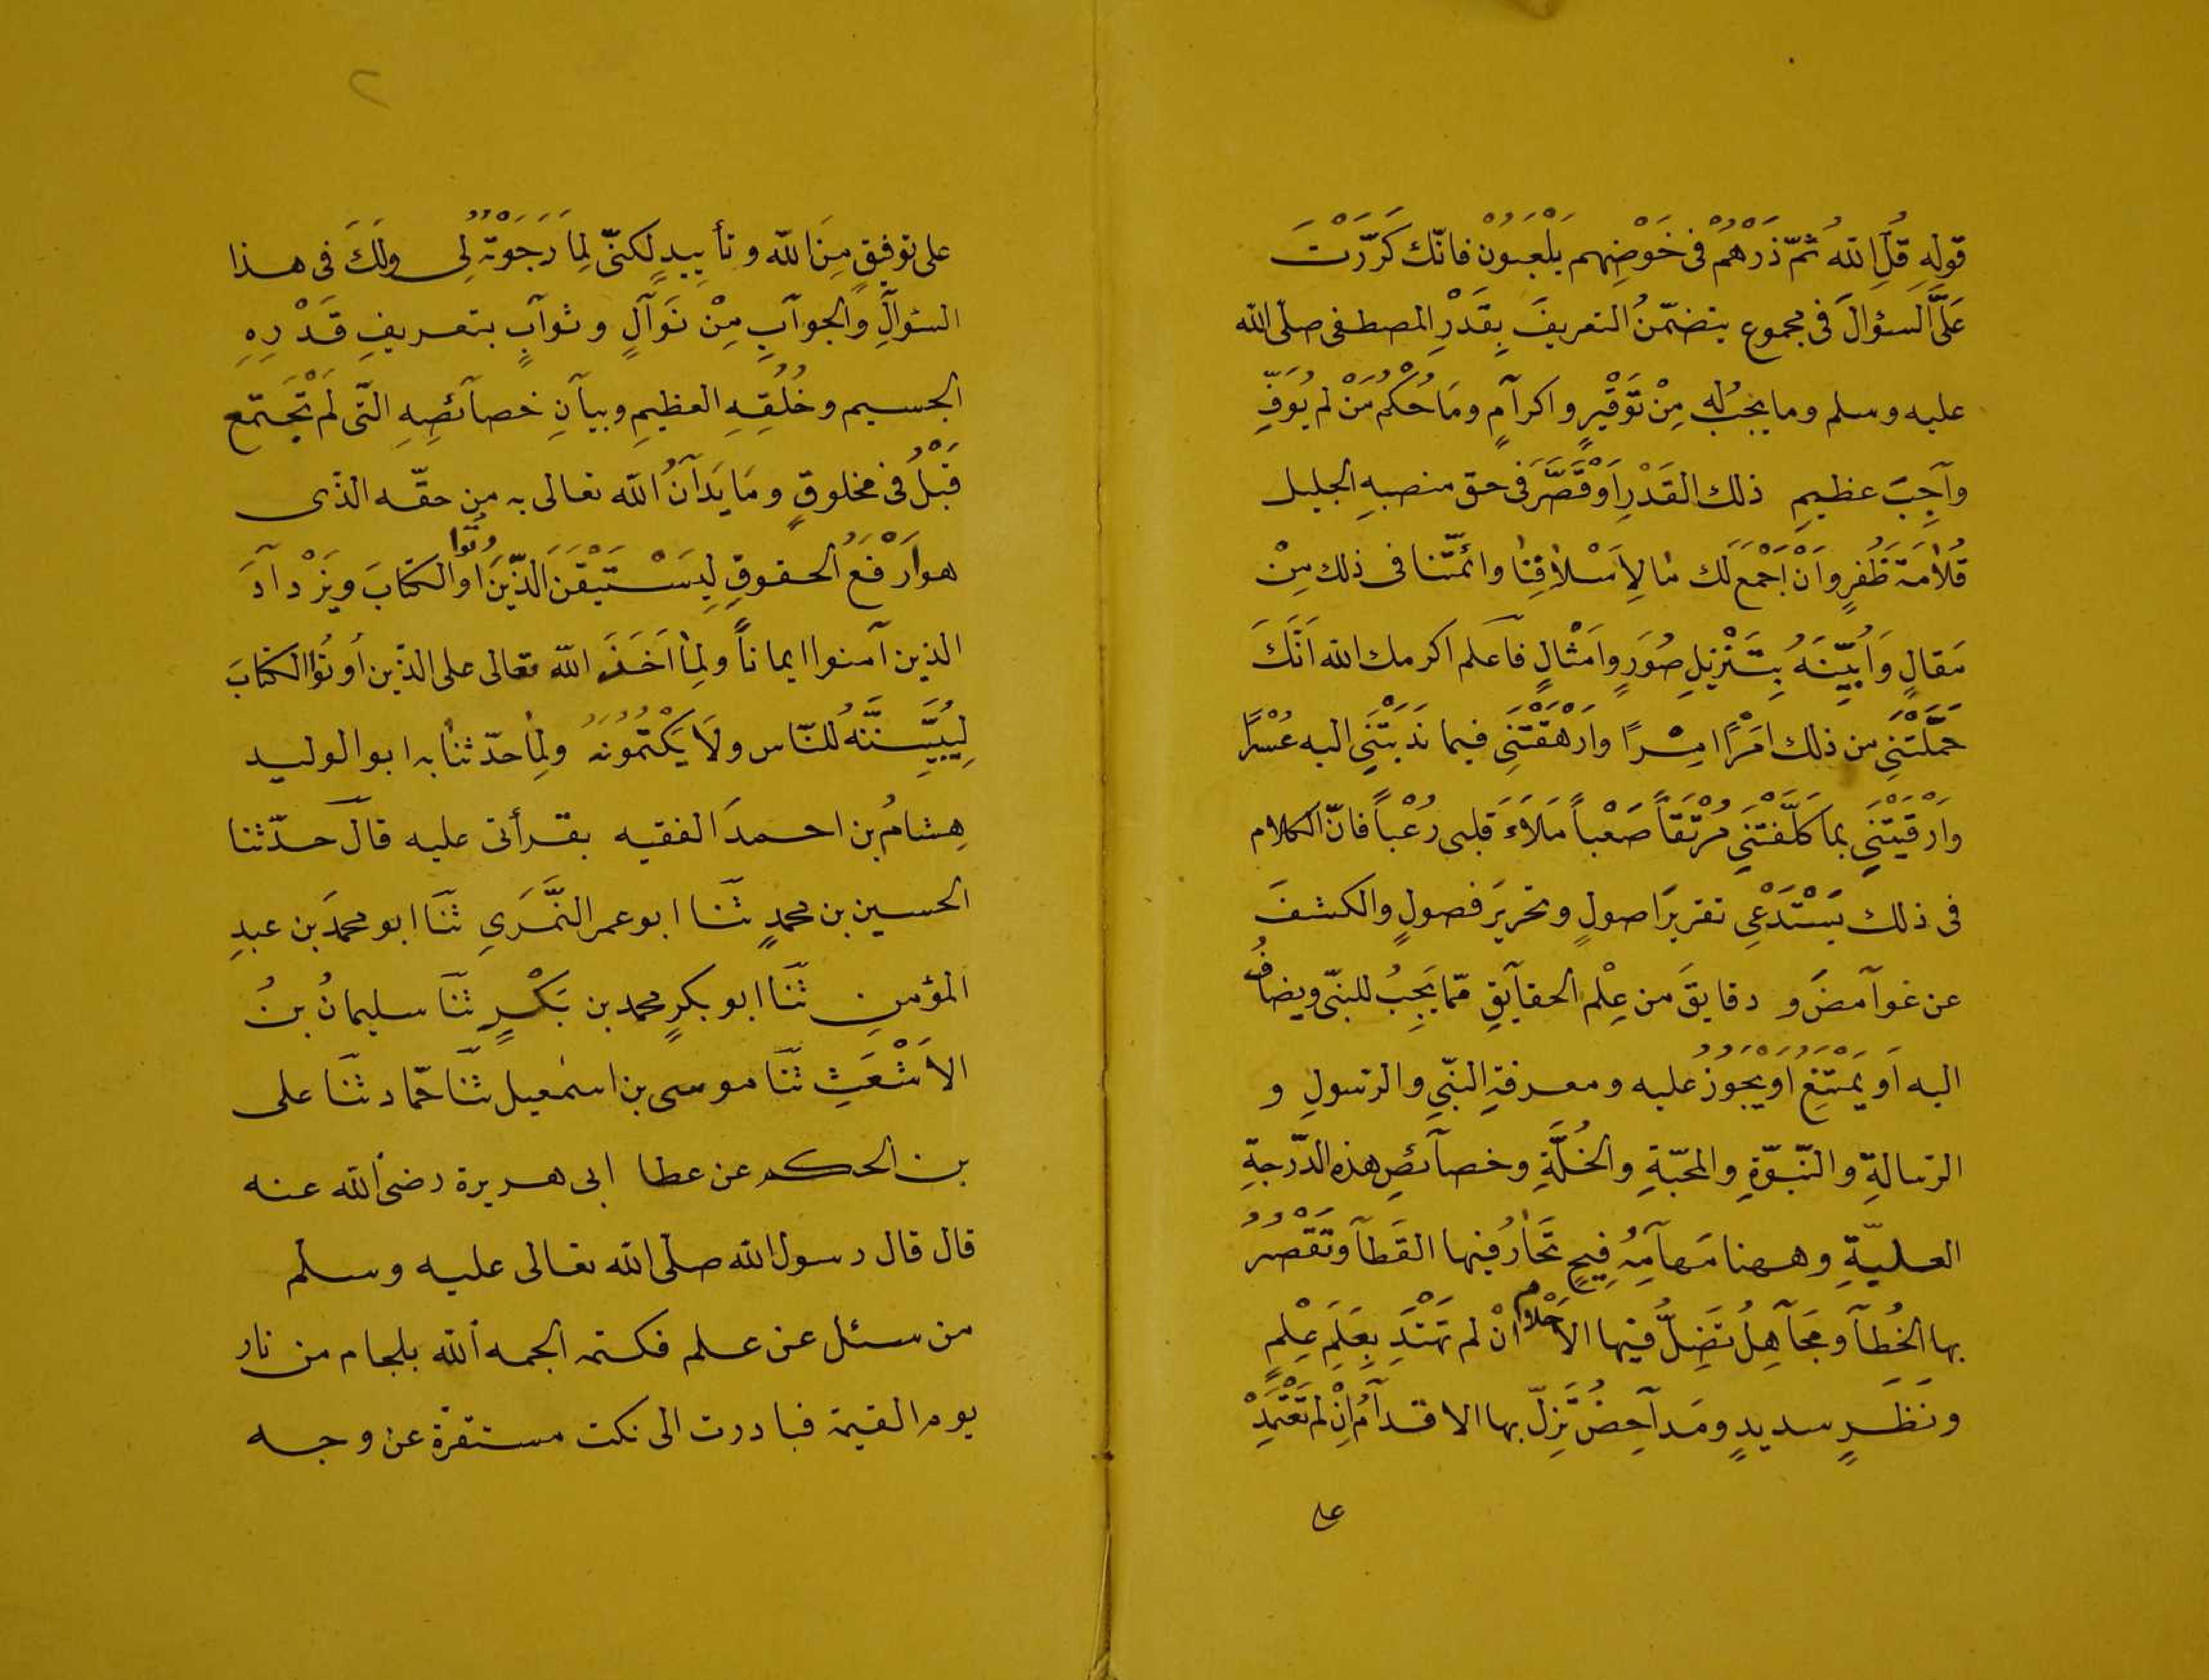 قولِهِ قُلِ اللهُ ثمّ ذَرْهُمْ فى خَوْضِهم يَلْعَبُوْن فانّك كَرَّرْتَ
عَلَىَّ السؤالَ فى مجموع يتضمّنُ التعريفَ بِقَدْرِ المصطفى صلى الله
عليه وسلم وما يجبُ له مِنْ تَوْقِيْرٍ واكرآمٍ ومَا حُكْمُ مَنْ لم يُوَفِّ
وآجِبَ عظيمِ ذلك القَدْرِ اَوْ قَصَّرَ فى حق منصبِهِ الجليل
قُلَامَةَ ظُفرٍ وَاَنْ اَجْمَعَ لَك مَا لِاَسْلَافِنَا وائمّتنا فى ذلك مِنْ
مَقالٍ وَاُبَيِّنَهُ بِتَنْزِيلِ صُوَرٍ وامَثْالٍ فآعلم اكرمك الله اَنَّكَ
حَمَّلْتَنِى من ذلك امَرًْا اِمْرًا وارَْهَقْتَنِى فيما نَدَبْتَنِى اليه عُسْرًا
وَاَرْقَيْتَنِى بما كَلَّفْتَنِى مُرْتَقاً صَعْباً مَلَاَءَ قلبى رُعْباً فانّ الكلام
فى ذلك يَسْتَدْعِى تقريرَ اصولٍ وتحريرَ فصولٍ والكشفَ
عن غوآمضَ و دقايقَ من عِلْمِ الحقآيقِ ممّا يَجِبُ للنبّى ويضافُ
اليه اَو يَمْتَنِعُ اَوْ يجوزُ عليه ومعرفةِ النبّىِ والرّسولِ و
الرّسالةِ والنّبوّةِ والمحبّةِ والخُلَّةِ وخصآئصِ هذه الدّرجةِ
العليّةِ وههنا مَهآمِهُ فِيحٍ تَحَارُ فيها القَطآ وتَقْصُرُ
بها الخُطآ ومَجَآهِلُ تَضِلُّ فيها الاَحْلَام انْ لم تَهْتَدِ بِعَلَمِ عِلْمٍ
ونَظَرٍ سديدٍ ومَدآحِضُ تَزِلّ بها الاقدآمُ اِنْ لم تَعْتَمِدْ
على
٢
على توفيقٍ مِنَ الله وتأييدٍ لكنّى لِمَا رَجَوْتُهُ لِى ولَكَ فى هذا
السّؤآلِ والجوآبِ مِنْ نَوَآلٍ وثوآبٍ بتعريفِ قَدْرِهِ
الجسيم وخُلُقِهِ العظيمِ وبيآنِ خصآئصِهِ التّى لمْ تَجْتَمع
قَبْلُ فى مخلوقٍ ومَا يَدَآنُ الله تعالى به من حقّه الذّى
هو اَرْفَعُ الحقوقِ لِيَسْتَيْقِنَ الذّينَ اوتُوا الكتابَ ويَزْدآدَ
الذين آمنوا ايماناً ولِمَا اَخَذَ الله تعالى على الذّين اُوتُوا الكتابَ
لِيُبَيِّنُنَّهُ للنّاس ولَا يَكْتُمُونَهُ ولِمَا حدّثنا به ابو الوليد
هِشامُ بن احمدَ الفقيه بقرأتى عليه قالَ حدّثنا
الحسين بن محمدٍ ثَنَا ابو عمر النَّمَرَىِ ثَنَا ابو محمدَ بن عبدِ
المؤمنِ ثَنَا ابو بكرٍ محمد بن بَكْرٍ ثَنَا سليمانُ بنُ
الاَشْعَثِ ثَنَا موسى بن اسمعيل ثَنَا حَمّاد ثَنَا على
بن الحكم عن عطا ابى هريرة رضى الله عنه
قال قال رسول الله صلّى الله تعالى عليه وسلّم
من سئل عن علم فكتمه الجمه الله بلجام من نار
يوم القيمة فبادرت الى نكت مستفرّة عن وجه